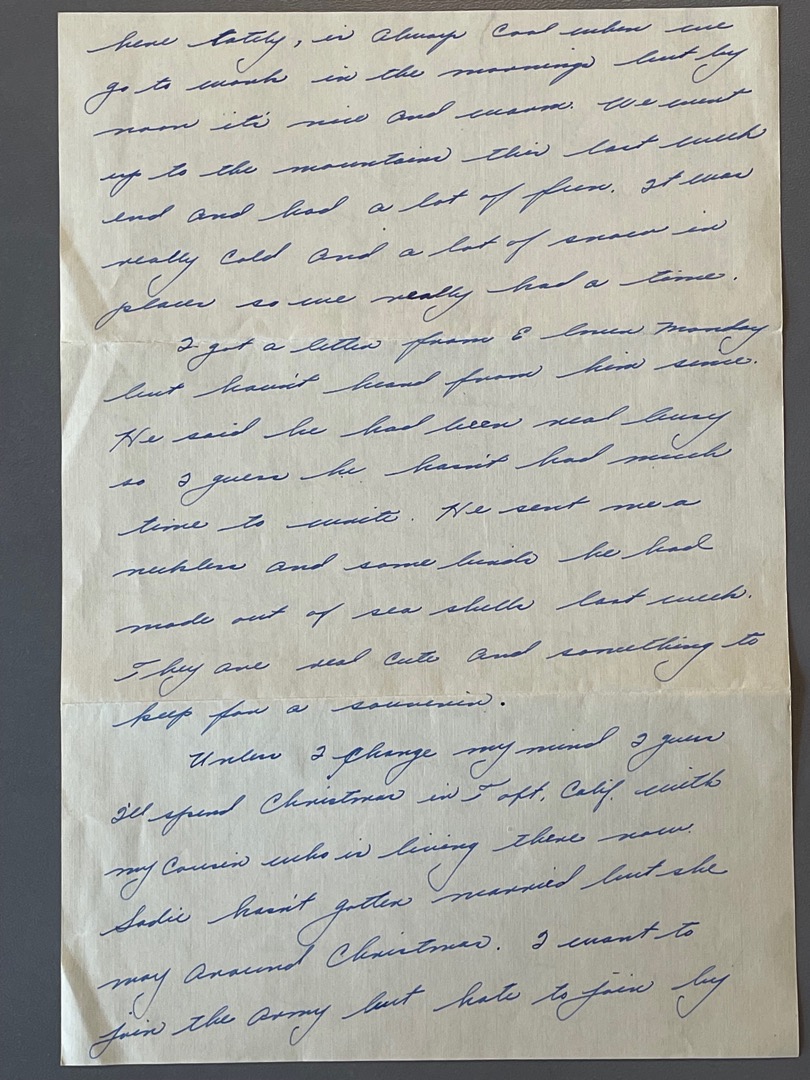 here lately, is always cool when we
go to work in the mornings but by
noon it's nice and warm. We went
up to the mountains this last week
end and had a lot of fun. It was
really cold and a lot of snow in
places so we really had a time.
I got a letter from Elmer Monday
but havn't heard from him since.
He said he had been real busy
so I guess he hasn't had much
time to write. He sent me a
neckless and some birds he had
made out of sea shells last week.
They are real cute and something to
keep for a souvenir.
Unless I change my mind I guess
I'll spend Christmas in Taft, Calif. with
my cousin who is living there now.
Sadie hasn't gotten married but she
may around Christmas. I want to
join the army but hate to join by